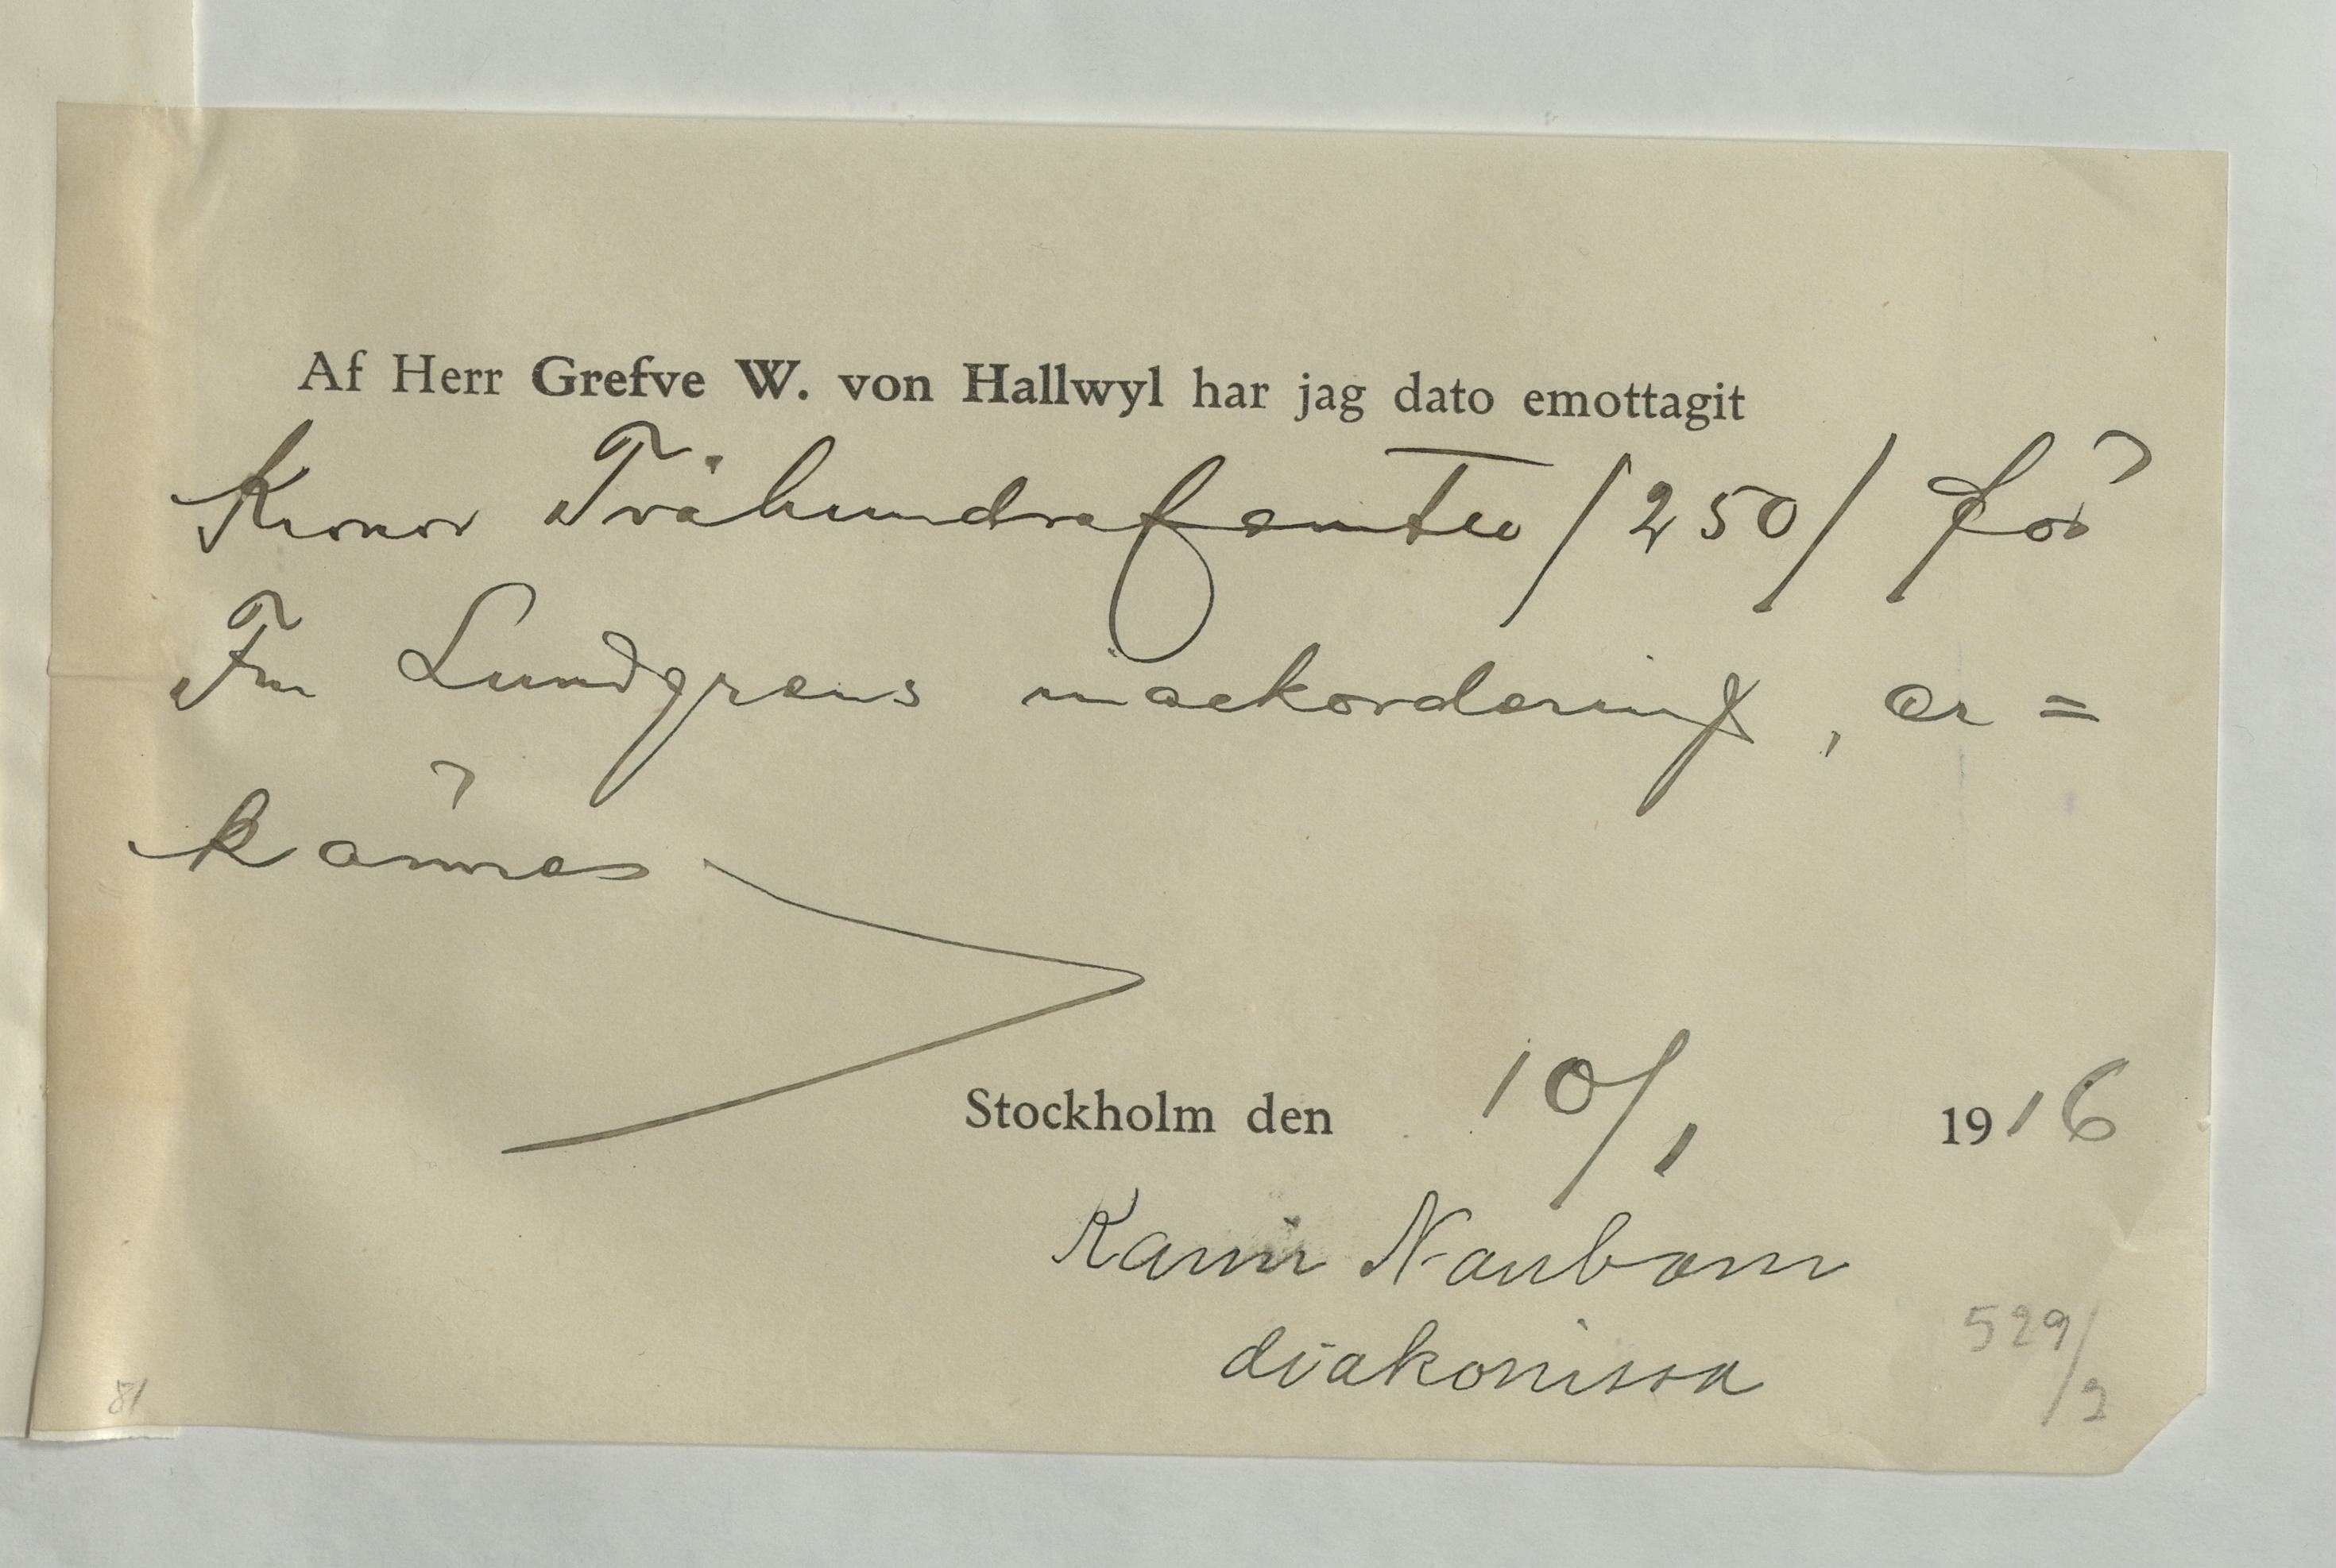 Af Herr Grefve W. von Hallwyl har jag dato emottagit
Kronor Tvåhundrafemtio /250/ för
Fru Lundgrens inackordering, er=
kännes
Stockholm den 10/1 1916
Karin
diakonissa
529/2
81